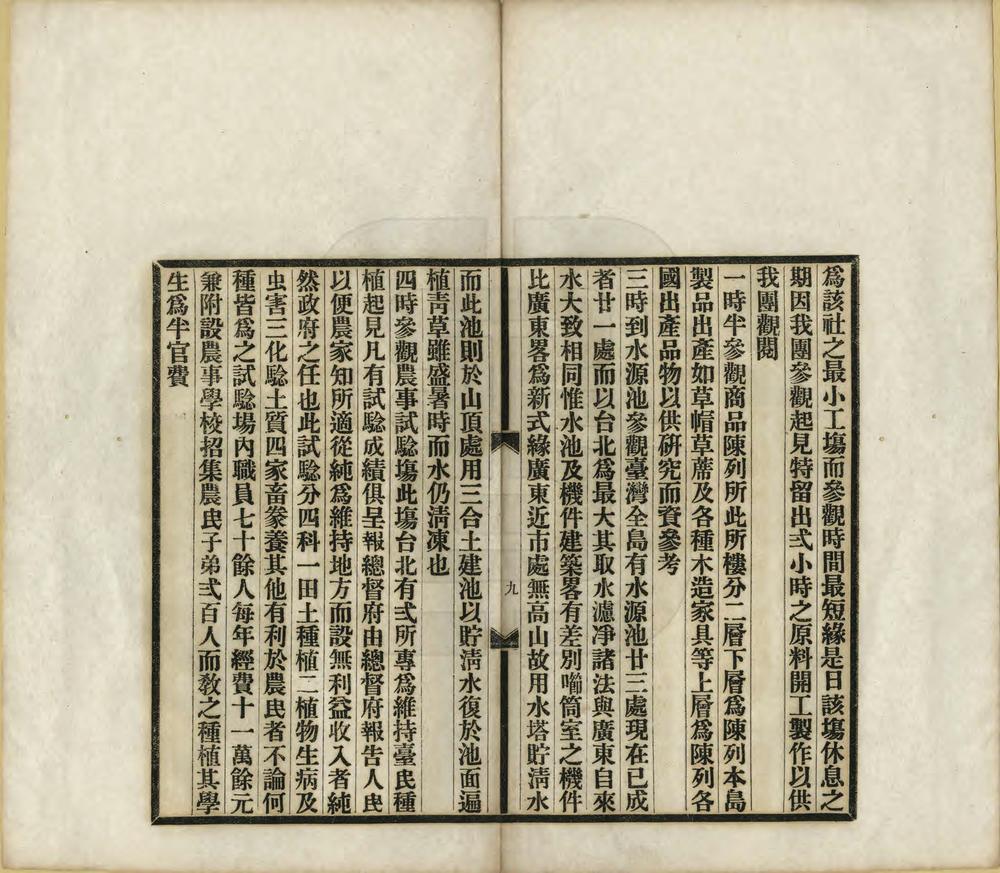 爲該社之最小工塲而參觀時間最短緣是日該塲休息之
期因我團參觀起見特留出弍小時之原料開工製作以供
我團觀閱
一時半參觀商品陳列所此所樓分二層下層爲陳列本島
製品出產如草帽草蓆及各種木造家具等上層爲陳列各
國出產品物以供研究而資參考
三時到水源池參觀臺灣全島有水源池廿三處現在已成
者廿一處而以台北爲最大其取水濾凈諸法與廣東自來
水大致相同惟水池及機件建築畧有差別喞筒室之機件
比廣東畧爲新式緣廣東近市處無高山故用水塔貯淸水
九
而此池則於山頂處用三合土建池以貯淸水復於池面遍
植靑草雖盛暑時而水仍淸凍也
四時參觀農事試驗塲此塲台北有弍所專爲維持臺民種
植起見凡有試驗成績俱呈報總督府由總督府報告人民
以便農家知所適從純爲維持地方而設無利益收入者純
然政府之任也此試驗分四科一田土種植二植物生病及
虫害三化驗土質四家畜豢養其他有利於農民者不論何
種皆爲之試驗塲內職員七十餘人每年經費十一萬餘元
兼附設農事學校招集農民子弟弍百人而敎之種植其學
生爲半官費